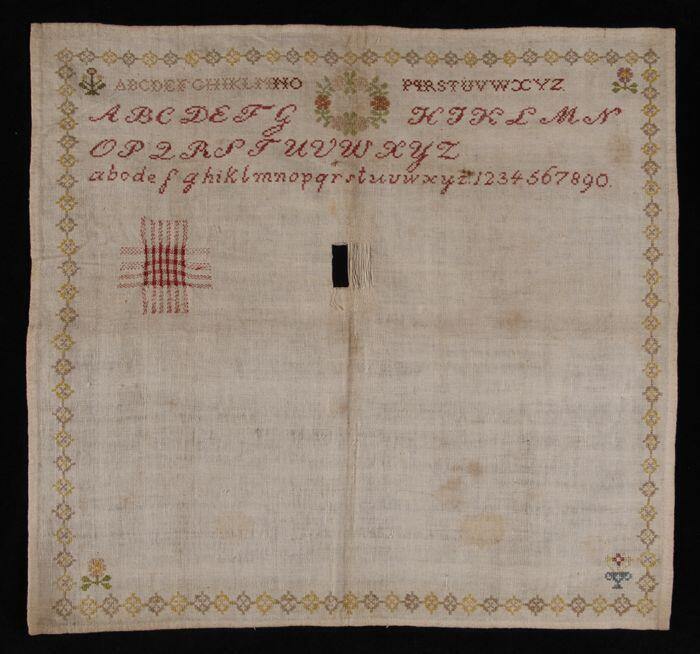 ABCDEFGHIKLMNO PQRSTUVWXYZ
ABCDEFG HIKLMN
OPQRSTUVWXYZ
abcdefghiklmnopqrstuvwxyz.1234567890.